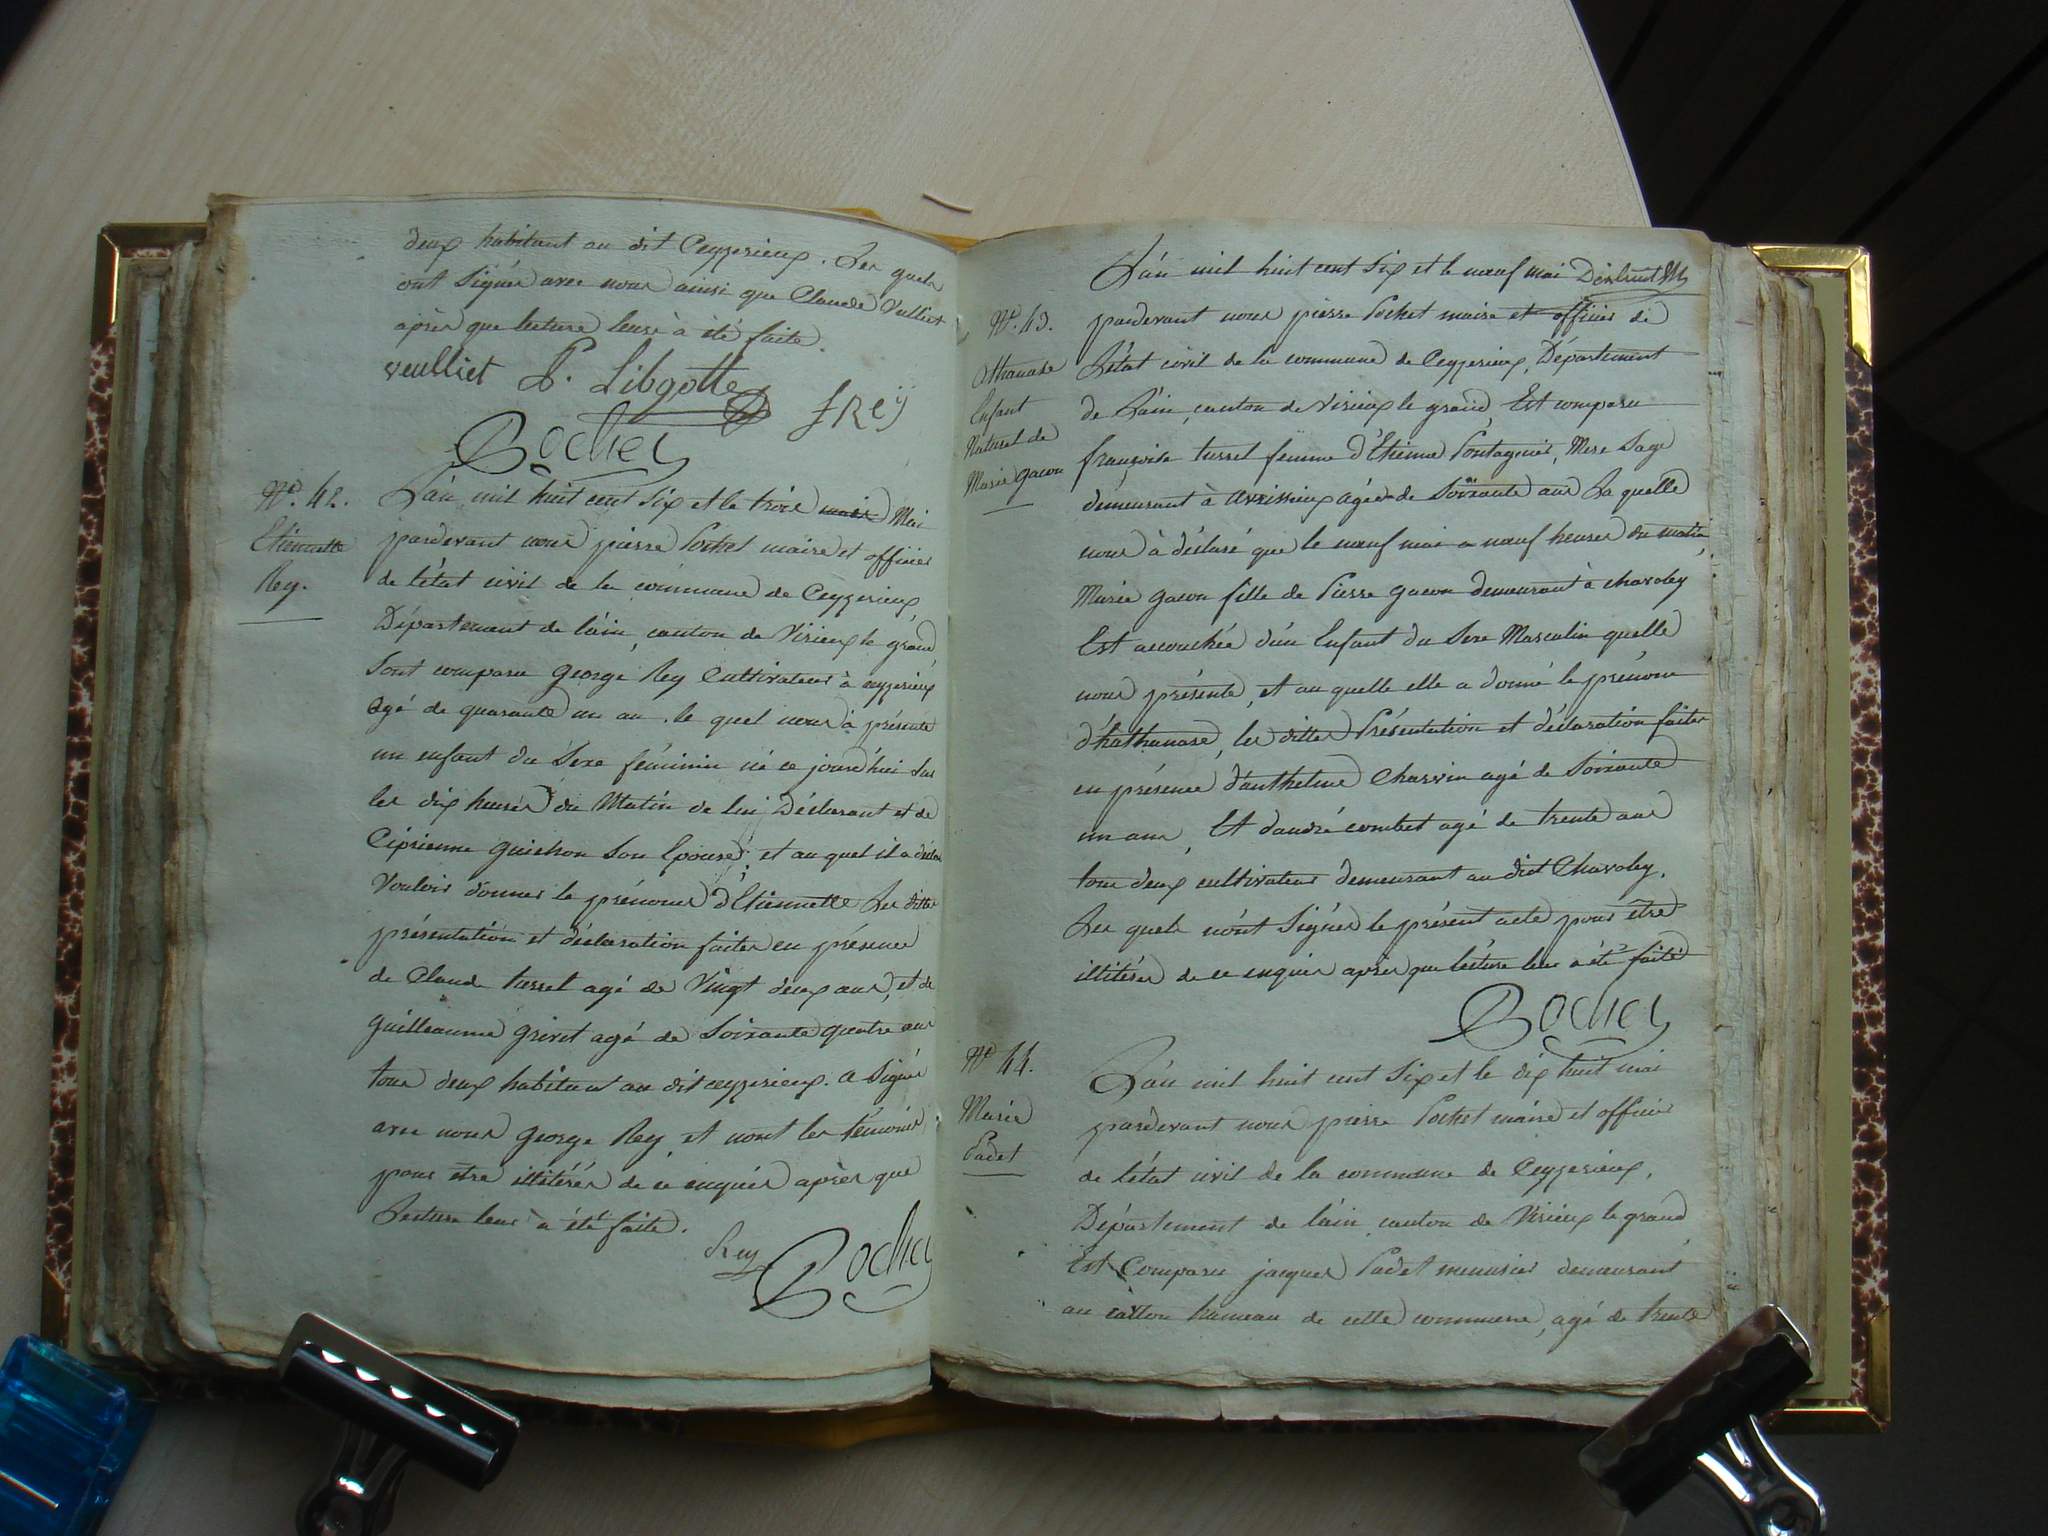 deux habitant au dit Ceyzerieux. Les quels
ont signés avec nous ainsi que Claude Vulliet
après que lecture leur à été faite.
veulliet P. Libgotte fRey
Bochet
N.º 42.
Etiennette
Rey.
L'an mil huit cent six et le trois mai Mai
pardevant nous pierre Bochet maire et officier
de l'état civil de la commune de Ceyzerieux,
Département de l'ain, canton de Virieux le grand
Sont comparu george Rey Cultivateur à ceyzerieux
agé de quarante un an. le quel nous à présenté
un enfant du Sexe féminin né ce jourd'hui sur
les dix heures du Matin de lui Déclarant et de
Ciprienne guichon son Epouse, et au quel il a déclaré
Vouloir donner le prénoms d'Etiennette Les dittes
présentation et déclaration faites en présence
de Claude turrel agé de Vingt deux ans, et de
guilleaume grivet agé de Soixante quatre ans
tous deux habitant au dit ceyzerieux. a Signés
avec nous george Rey et nont les témoins
pour etre illitérés de ce enquis après que
Lecture leur à été faite.
Rey Bochet
N.º 43.
Athanase
Enfant
Naturel de
Marie gacon
L'an mil huit cent six et le neuf mai
pardevant nous pierre Bochet maire et officier de
L'état civil de la commune de Ceyzerieux, Département
de L'ain, canton de Virieux le grand, Est comparu
françoise turrel femme d'Etienne Pontagnier, Mere Sage
demeurant à avrissieux agée de Soixante ans La quelle
nous à déclaré que le neuf mai a neuf heures du matin
Marie gacon fille de Pierre gacon demeurant à charoley
Est accouchée d'un Enfant du Sexe Masculin quelle
nous présente, et au quelle elle a donné le prénom
d'hathanase, les dittes Présentation et déclaration faites
en présence d'anthelme Charvin agé de Soixante
un ans, Et d'andré combet agé de trente ans
tous deux cultivateurs demeurant au dit Charoley.
Les quels n'ont Signés le présent acte pour être
illitérés de ce enquis après que lecture leur a été faite
Bochet
N.º 44.
Marie
Padet
L'an mil huit cent six et le dix huit mai
pardevant nous pierre Bochet maire et officier
de l'état civil de la commune de Ceyzerieux,
Département de l'ain canton de Virieux le grand
Est Comparu jacques Padet menusier demeurant
au hameau de cette commune, agé de trente